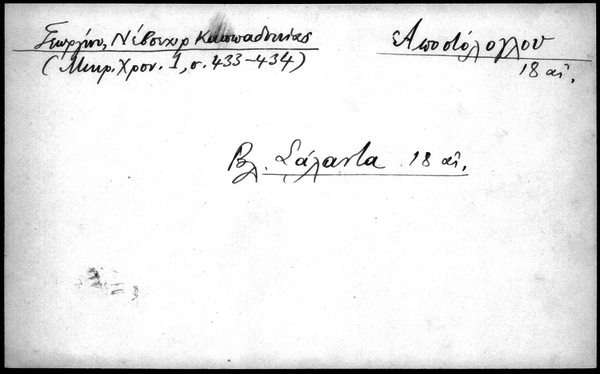 Γεωργίου, Νέβσεχιρ Καππαδοκίας
(Μικρ. Χρον. 1, σ. 433-434)
Αποστόλογλου
18 αἰ.
Βλ. Σάλαντα 18 αἰ.